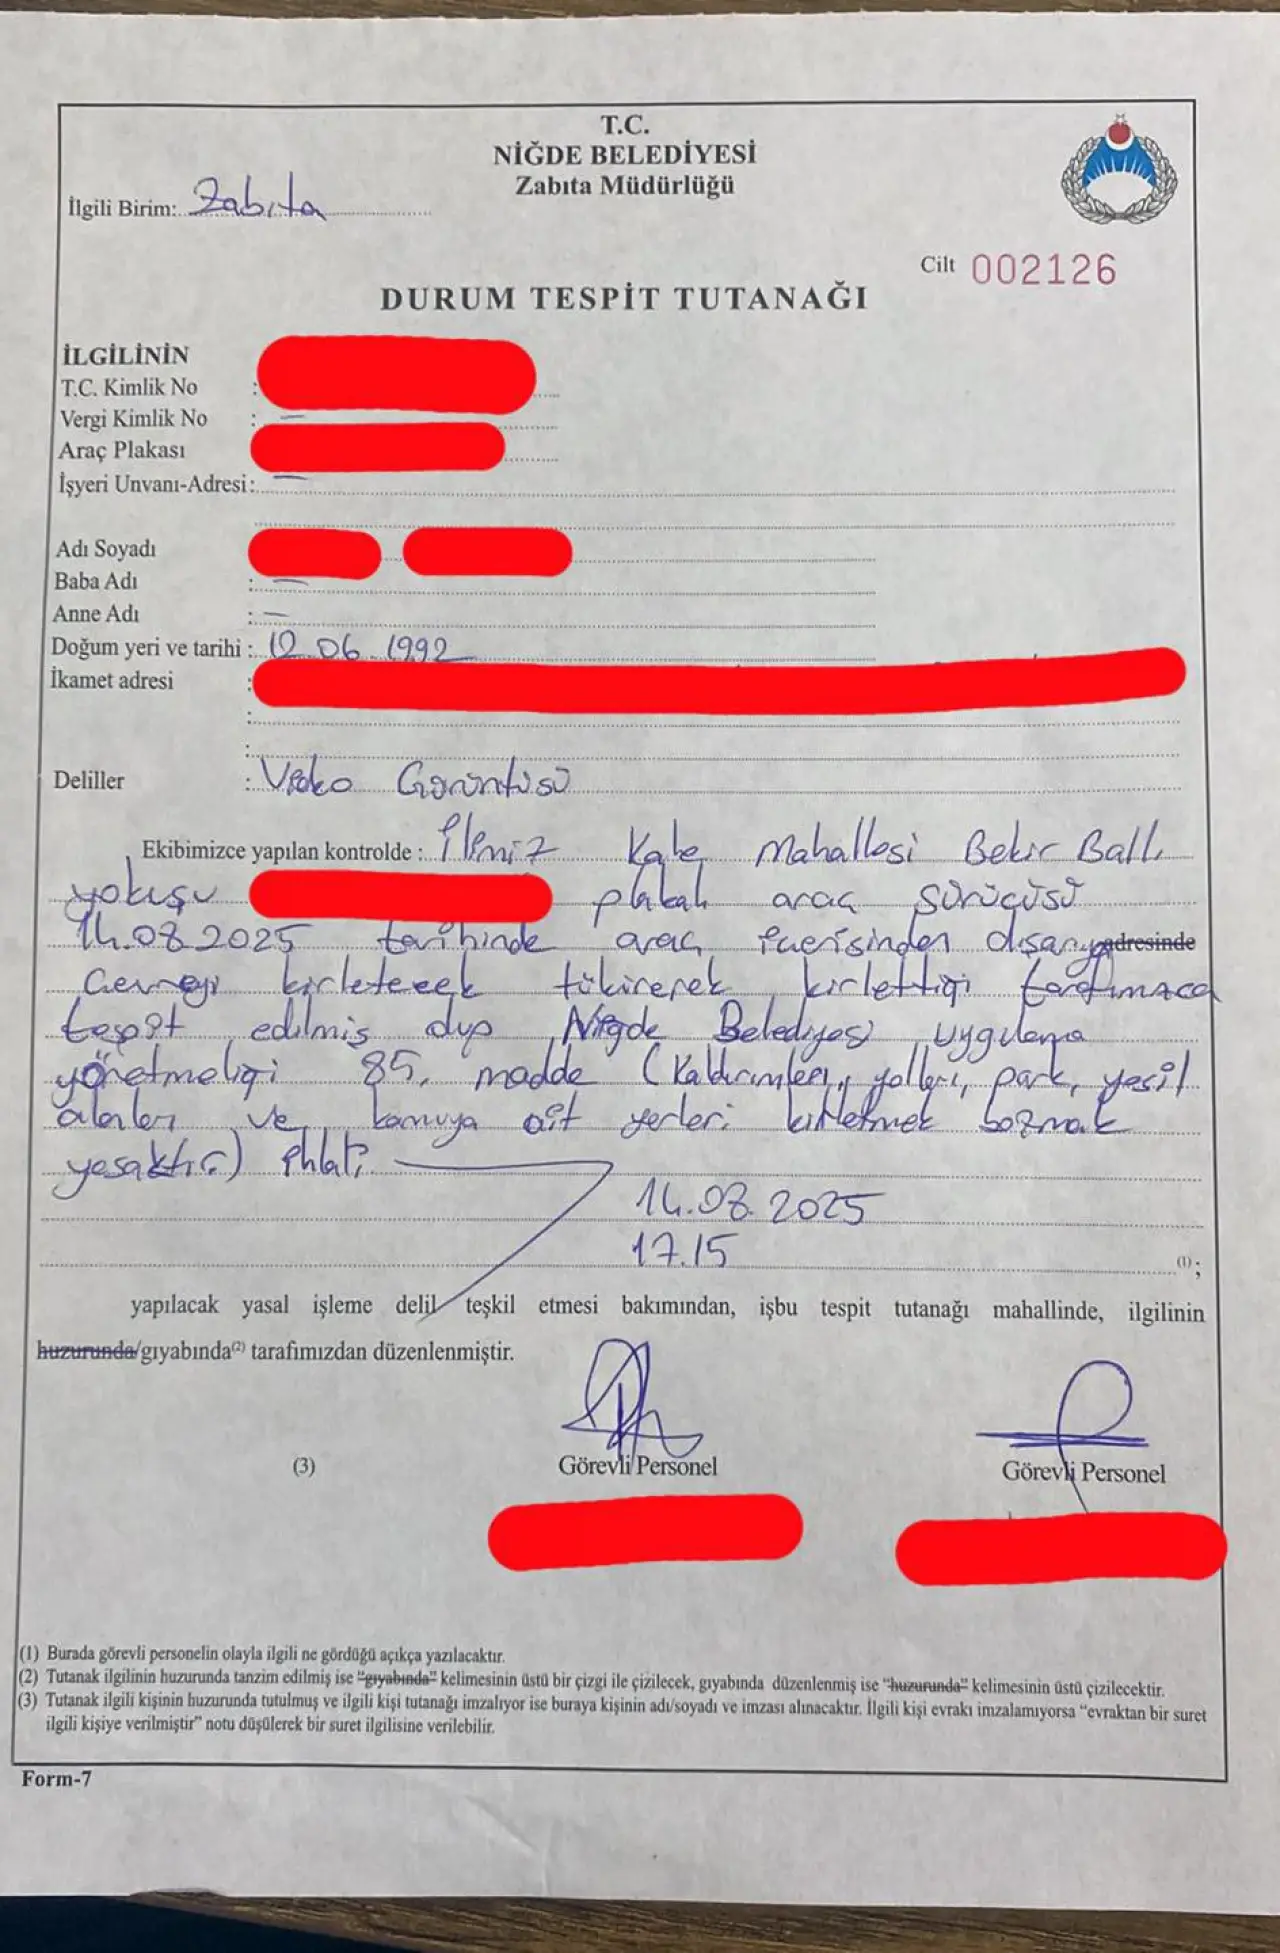 T.C.
NİĞDE BELEDİYESİ
Zabıta Müdürlüğü
İlgili Birim: Zabıta
Cilt 002126
DURUM TESPİT TUTANAĞI
İLGİLİNİN
T.C. Kimlik No :
Vergi Kimlik No : —
Araç Plakası
İşyeri Unvanı-Adresi: —
Adı Soyadı
Baba Adı : —
Anne Adı : —
Doğum yeri ve tarihi : 12.06.1992
İkamet adresi :
:
:
Deliller : Video Görüntüsü
Ekibimizce yapılan kontrolde : İlimiz Kale Mahallesi Bekir Ballı
yokuşu plakalı araç sürücüsü
14.08.2025 tarihinde araç içerisinden dışarıya adresinde
çevreyi kirletecek tükürerek kirlettiği tarafımızca
tespit edilmiş olup Niğde Belediyesi uygulama
yönetmeliği 85. madde (Kaldırımları, yolları, park, yeşil
alanları ve kamuya ait yerleri kirletmek bozmak
yasaktır.) ihlali
14.08.2025
17.15
(1) ;
yapılacak yasal işleme delil teşkil etmesi bakımından, işbu tespit tutanağı mahallinde, ilgilinin
huzurunda/gıyabında(2) tarafımızdan düzenlenmiştir.
(3) Görevli Personel Görevli Personel
(1) Burada görevli personelin olayla ilgili ne gördüğü açıkça yazılacaktır.
(2) Tutanak ilgilinin huzurunda tanzim edilmiş ise "gıyabında" kelimesinin üstü bir çizgi ile çizilecek, gıyabında düzenlenmiş ise "huzurunda" kelimesinin üstü çizilecektir.
(3) Tutanak ilgili kişinin huzurunda tutulmuş ve ilgili kişi tutanağı imzalıyor ise buraya kişinin adı/soyadı ve imzası alınacaktır. İlgili kişi evrakı imzalamıyorsa "evraktan bir suret
ilgili kişiye verilmiştir" notu düşülerek bir suret ilgilisine verilebilir.
Form-7